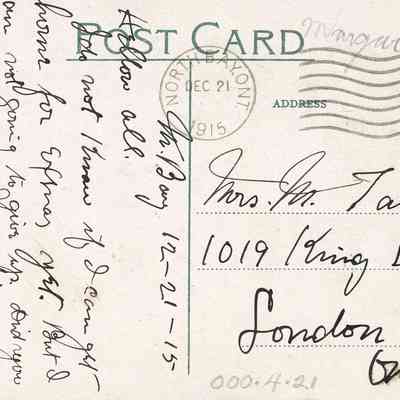 POST CARD
NORTH BAY, ONT
DEC 21
1915
ADDRESS
N. Bay 12-21-15
Hellow all.
I do not know if I can get
home for Exmas yet. But I
am not going to give up. Did you
Mrs. M. Ta
1019 King
London
On
000.4.21